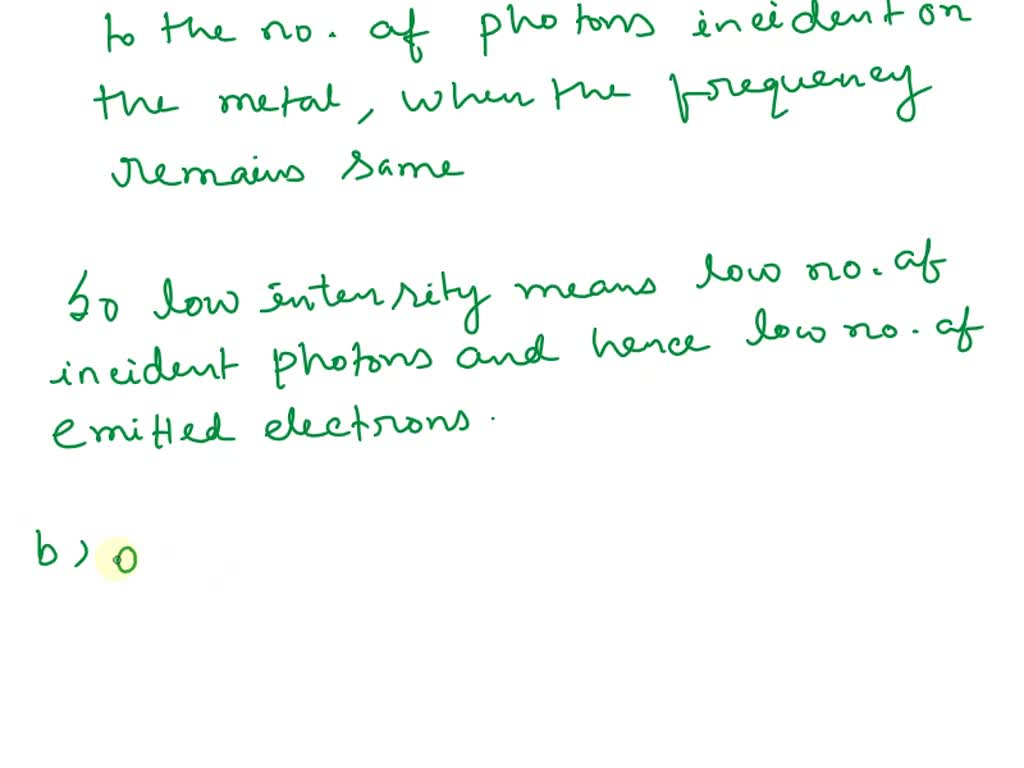 to the no. of photons incident on
the metal, when the frequency
remains same
So low intensity means low no. of
incident photons and hence low no. of
emitted electrons.
b) o